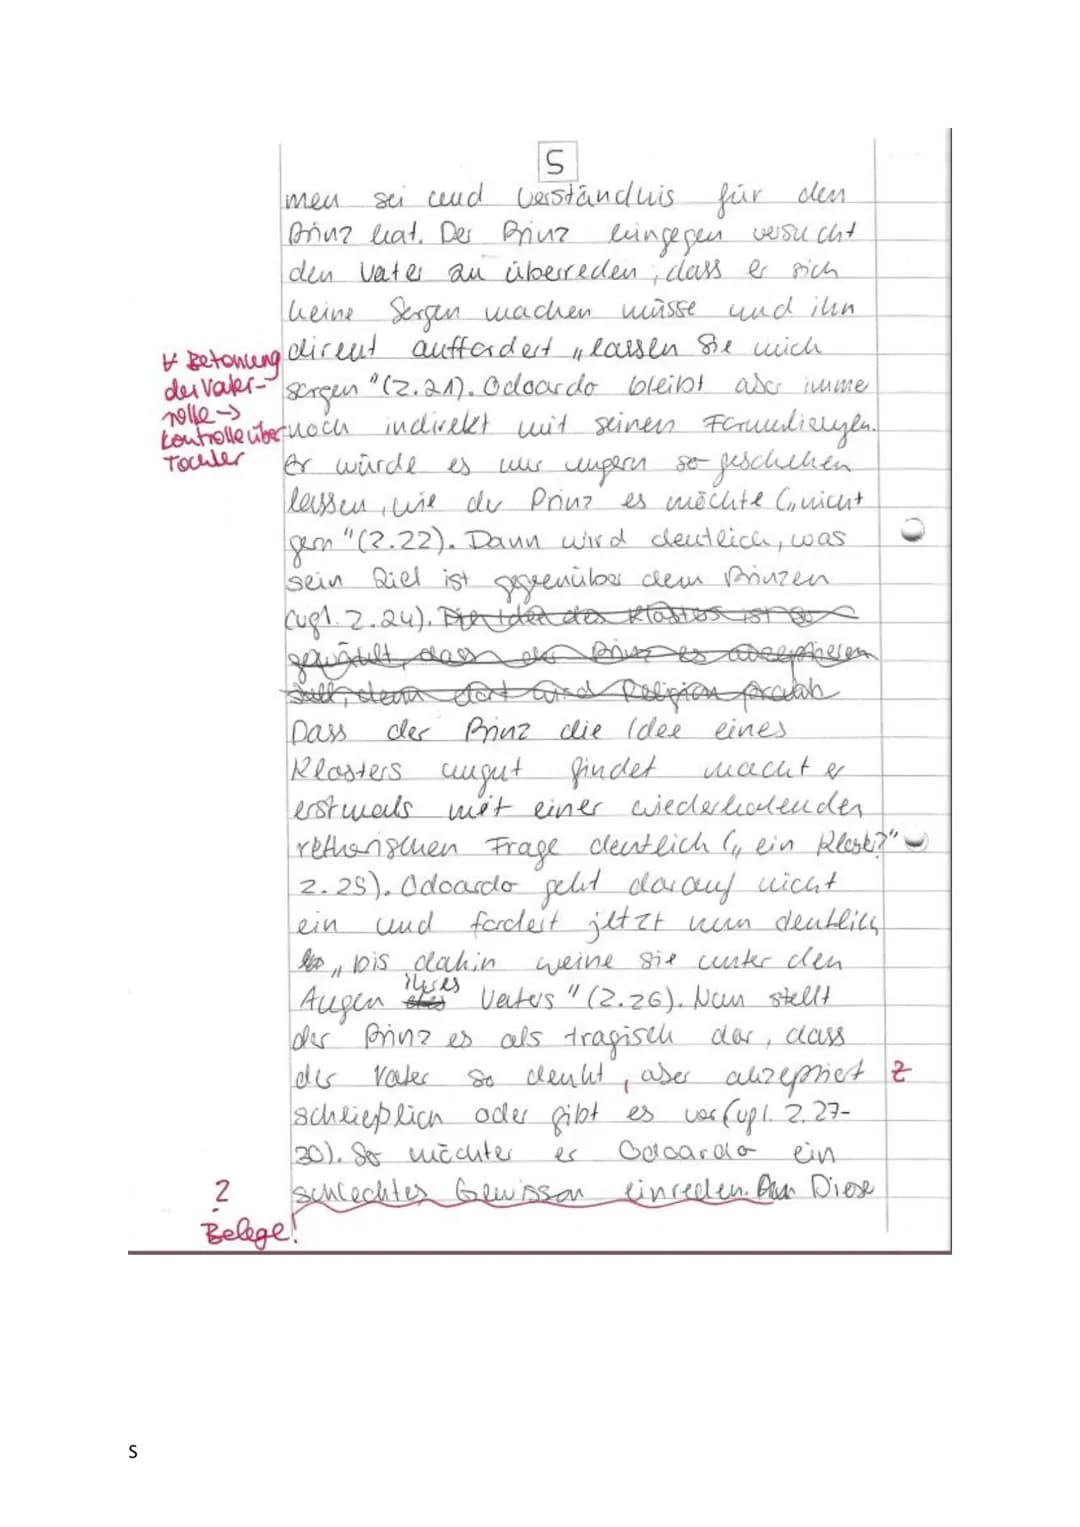 5
men sei und Verständnis für den
Prinz hat. Der Prinz hingegen versucht
den Vater zu überreden, dass er sich
keine Sorgen machen müsse und ihn
direkt auffordert „lassen Sie mich
sorgen" (Z.21). Odoardo bleibt aber imme
noch indirekt mit seinen Formulierungen.
Er würde es nur ungern so geschehen
lassen, wie der Prinz es möchte („nicht
gern" (Z.22). Dann wird deutlich, was
sein Ziel ist gegenüber dem Prinzen
(vgl. Z.24). Die Idee des Klosters ist so
gewählt, dass der Prinz es akzeptieren
soll, denn dort wird Religion
Dass der Prinz die Idee eines
Klosters ungut findet macht er
erstmals mit einer wiederholenden
rethorischen Frage deutlich („ein Klost?"
Z.25). Odoardo geht darauf nicht
ein und fordert jetzt nun deutlich
„bis dahin weine sie unter den
Augen ihres Vaters" (Z.26). Nun stellt
der Prinz es als tragisch dar, dass
der Vater so denkt, aber akzeptiert
schließlich oder gibt es vor (vgl. Z.27-
30). So möchter er Odoardo ein
schlechtes Gewissen einreden. Diese
Betonung
der Vater-
rolle →
Kontrolle über
Tochter
Z
?
Belege!
S